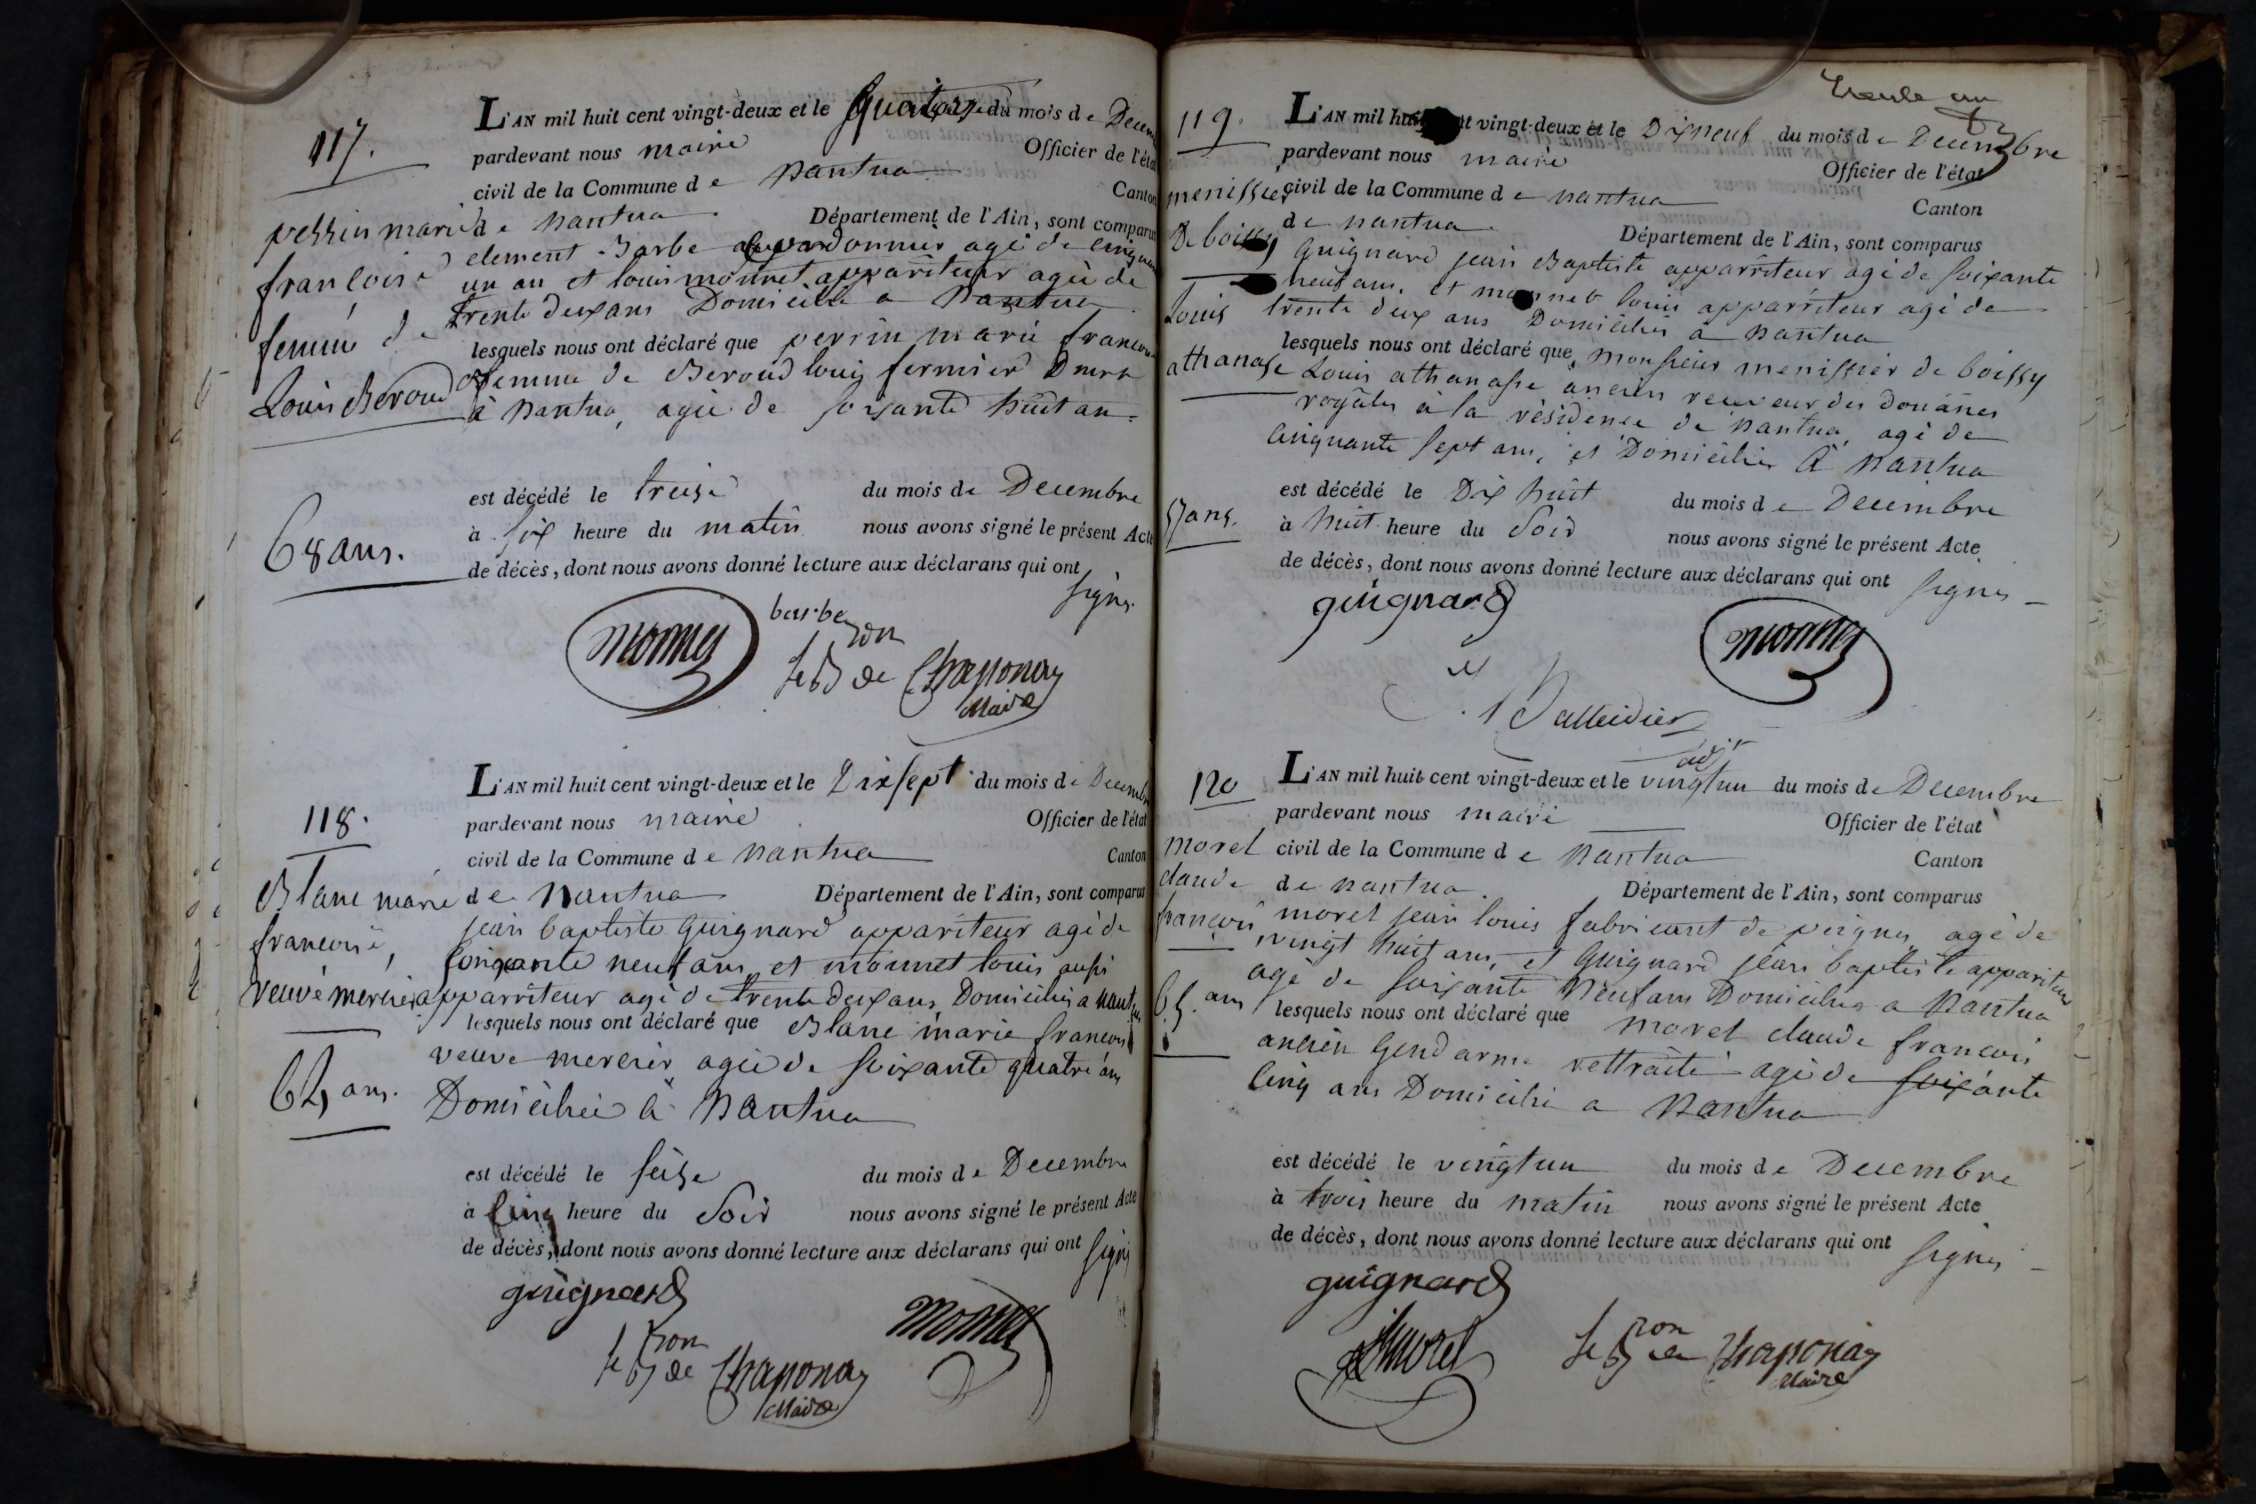 117.
perrin marie
francoise
femme de
Louis Beroud
68 ans.
L'AN mil huit cent vingt-deux et le quatorze du mois de Decem
pardevant nous maire Officier de l'éta
civil de la Commune de nantua Canton
de nantua. Département de l'Ain, sont comparus
clement Barbe cordonnier agé de cinquante
un an et louis monnet appariteur agé de
trente deux ans Domiciliés a nantua
lesquels nous ont déclaré que perrin marie francoise
femme de Beroud louis fermier Dmt
à nantua, agée de soixante huit ans
est décédé le treise du mois de Decembre
à six heure du matin nous avons signé le présent Acte
de décès, dont nous avons donné lecture aux déclarans qui ont
signés
monnet barbe
le Bon de Chaponay
Maire
118.
Blanc marie
francoise,
veuve mercier
64 ans.
L'AN mil huit cent vingt-deux et le Dix sept du mois de Decembre
pardevant nous maire Officier de l'état
civil de la Commune de nantua Canton
de nantua Département de l'Ain, sont comparus
jean baptiste guignard appariteur agé de
soixante neuf ans et monnet louis aussi
appariteur agé de trente deux ans Domiciliés a nantua
lesquels nous ont déclaré que Blanc marie francoise
veuve mercier agée de soixante quatre ans
Domiciliée à nantua
est décédé le seise du mois de Decembre
à cinq heure du Soir nous avons signé le présent Acte
de décès, dont nous avons donné lecture aux déclarans qui ont signés
guignard monnet
le Bon de Chaponay
Maire
trente un
119.
menissier
De boissy
Louis
athanase
57 ans.
L'AN mil huit cent vingt-deux et le Dixneuf du mois de Decembre
pardevant nous maire Officier de l'état
civil de la Commune de nantua Canton
de nantua. Département de l'Ain, sont comparus
Guignard jean Baptiste appariteur agé de soixante
neuf ans. et monnet louis appariteur agé de
trente deux ans Domiciliés à nantua
lesquels nous ont déclaré que monsieur menissier de boissy
Louis athanase ancien receveur des douanes
royales à la résidence de nantua, agé de
cinquante sept ans, et Domicilié à nantua
est décédé le Dix huit du mois de Decembre
à huit heure du Soir nous avons signé le présent Acte
de décès, dont nous avons donné lecture aux déclarans qui ont signés
guignard monnet
adjt
120
morel
claude
francois
65. ans
L'AN mil huit cent vingt-deux et le vingtun du mois de Decembre
pardevant nous maire Officier de l'état
civil de la Commune de nantua Canton
de nantua. Département de l'Ain, sont comparus
morel jean louis fabricant de peignes agé de
vingt huit ans, et Guignard jean baptiste appariteur
agé de soixante neuf ans Domiciliés a nantua
lesquels nous ont déclaré que morel claude francois
ancien Gendarme rettraité agé de soixante
cinq ans Domicilié a nantua
est décédé le vingtun du mois de Decembre
à trois heure du matin nous avons signé le présent Acte
de décès, dont nous avons donné lecture aux déclarans qui ont signés
guignard
morel le Bon de Chaponay
Maire